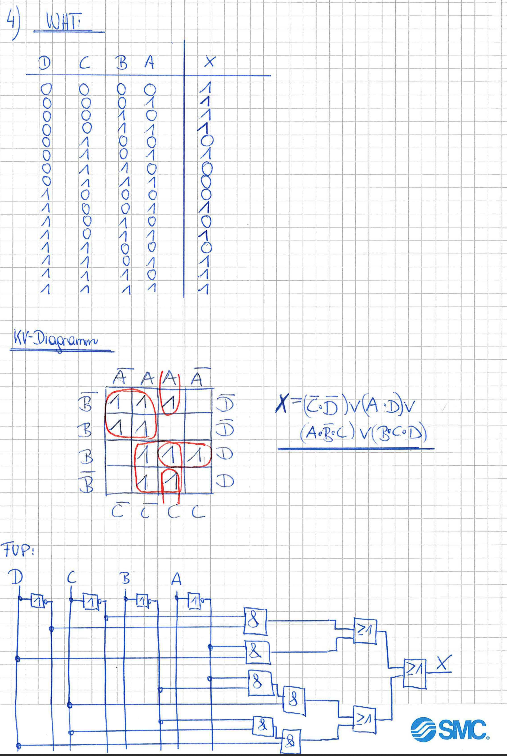 4) WHT:
D C B A X
0 0 0 0 1
0 0 0 1 1
0 0 1 0 1
0 0 1 1 1
0 1 0 0 0
0 1 0 1 1
0 1 1 0 0
0 1 1 1 0
1 0 0 0 0
1 0 0 1 1
1 0 1 0 0
1 0 1 1 1
1 1 0 0 0
1 1 0 1 1
1 1 1 0 1
1 1 1 1 1
KV-Diagramm
A̅ A A A̅
B̅ 1 1 1 D̅
B 1 1 D̅
B 1 1 1 D
B̅ 1 1 D
C̅ C̅ C C
X=(C̅∘D̅)∨(A∘D)∨
(A∘B̅∘C)∨(B∘C∘D)
FUP:
D C B A
1 1 1 1
&
≥1
&
≥1 X
&
&
≥1
&
&
SMC.